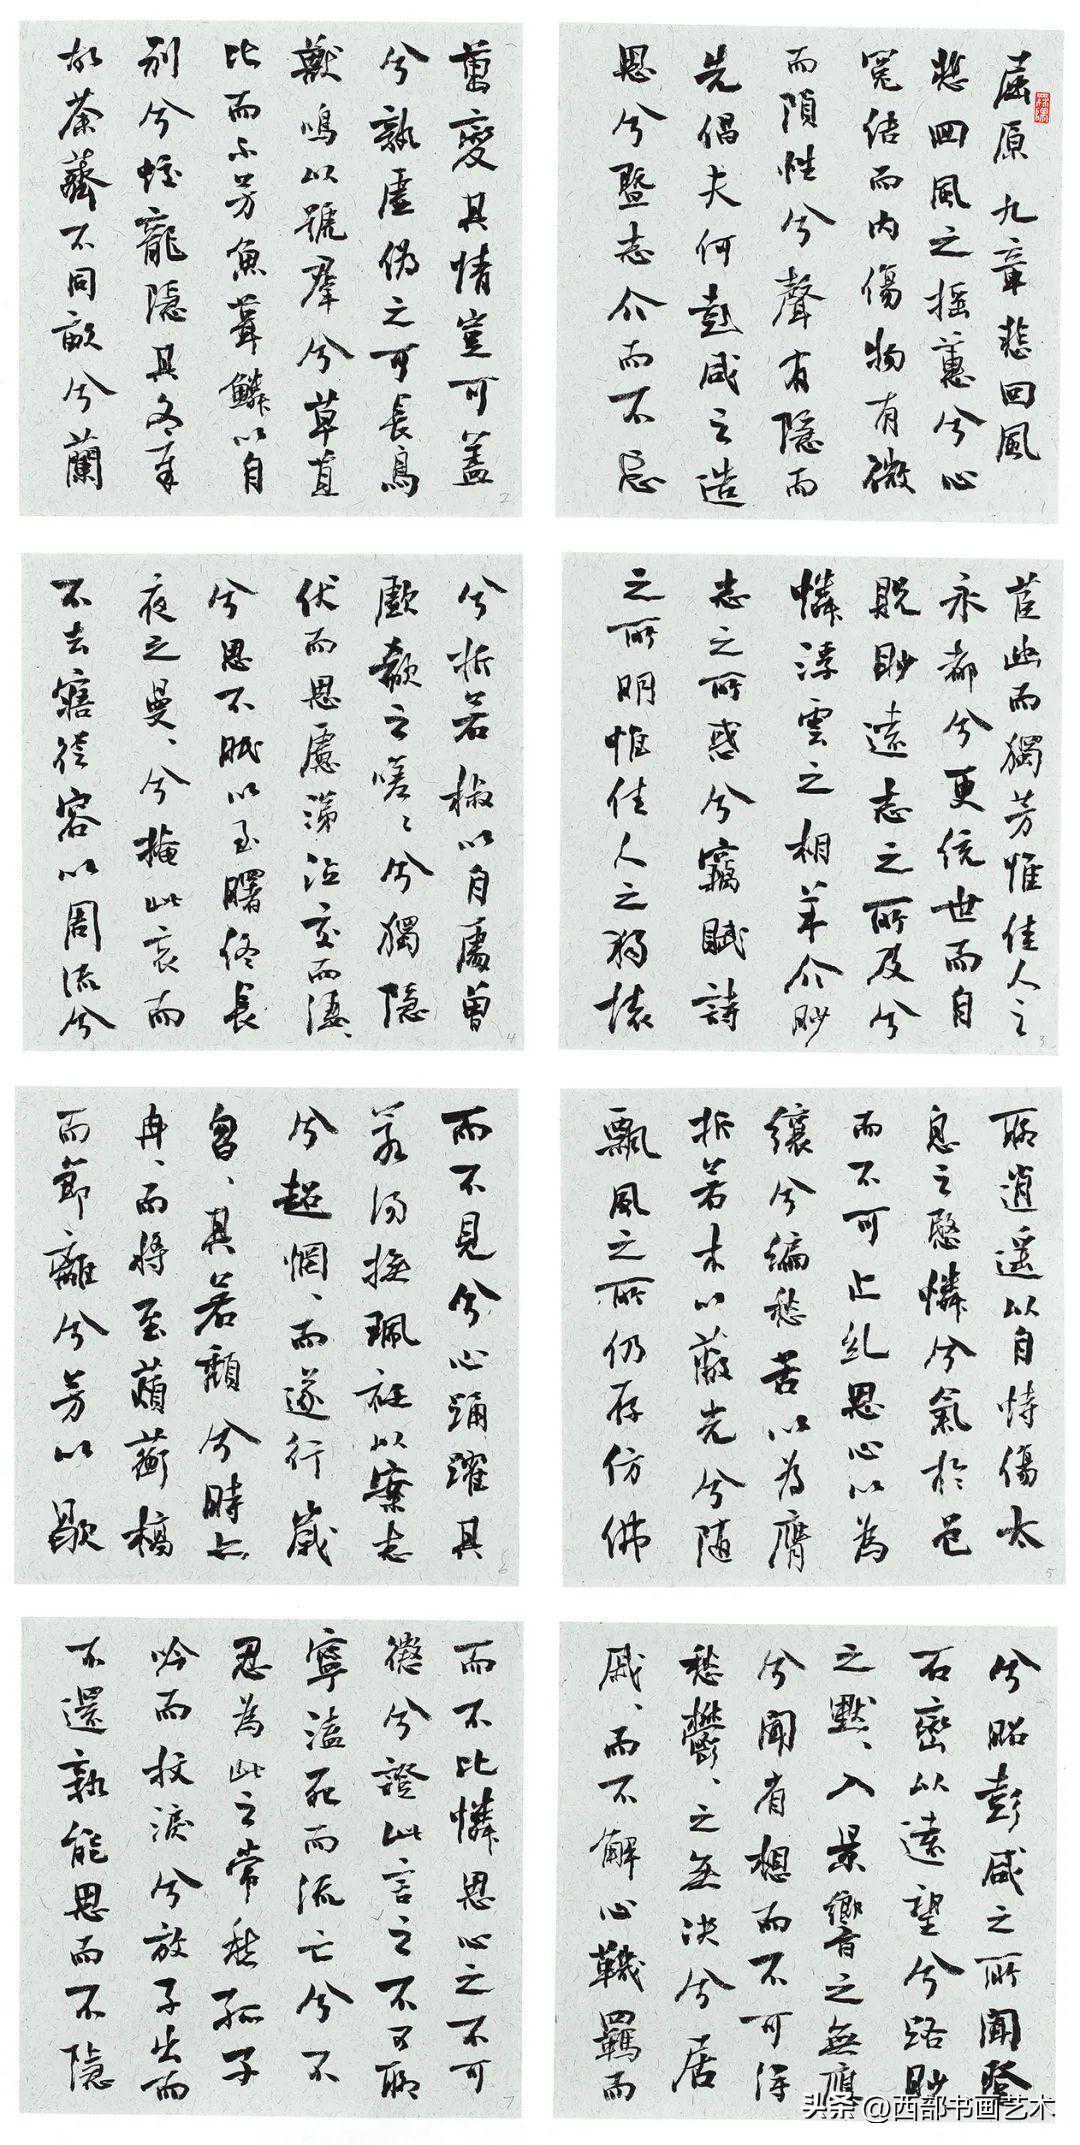 屈原九章悲回風
悲回風之搖蕙兮心
冤结而内傷物有微
而隕性兮聲有隱而
先倡夫何彭咸之造
思兮暨志介而不忘
萬變其情豈可蓋
兮孰虛偽之可長鳥
獸鳴以號群兮草苴
比而不芳魚葺鱗以自
別兮蛟龍隱其文章
故荼薺不同畝兮蘭
2
1
茞幽而獨芳惟佳人之
永都兮更統世而自
貺眇遠志之所及兮
憐浮雲之相羊介眇
志之所惑兮竊賦詩
之所明惟佳人之獨懷
3
兮折若椒以自處曾
歔欷之嗟、兮獨隱
伏而思慮涕泣交而淒、
兮思不眠以至曙終長
夜之曼、兮掩此哀而
不去寤從容以周流兮
4
聊逍遙以自恃傷太
息之愍憐兮氣於邑
而不可止糺思心以為
纕兮編愁苦以為膺
折若木以蔽光兮隨
飄風之所仍存仿佛
5
而不見兮心踊躍其
若湯撫珮衽以案志
兮超惘、而遂行歲
曶、其若頹兮時亦
冉、而將至薠蘅槁
而節離兮芳以歇
6
而不比憐思心之不可
懲兮證此言之不可聊
寧溘死而流亡兮不
忍為此之常愁孤子
吟而抆淚兮放子出而
不還孰能思而不隱
7
兮昭彭咸之所聞登
石巒以遠望兮路眇
之默、入景響之無應
兮聞省想而不可得
愁鬱、之無快兮居
戚、而不解心鞿羈而
头条 @西部书画艺术